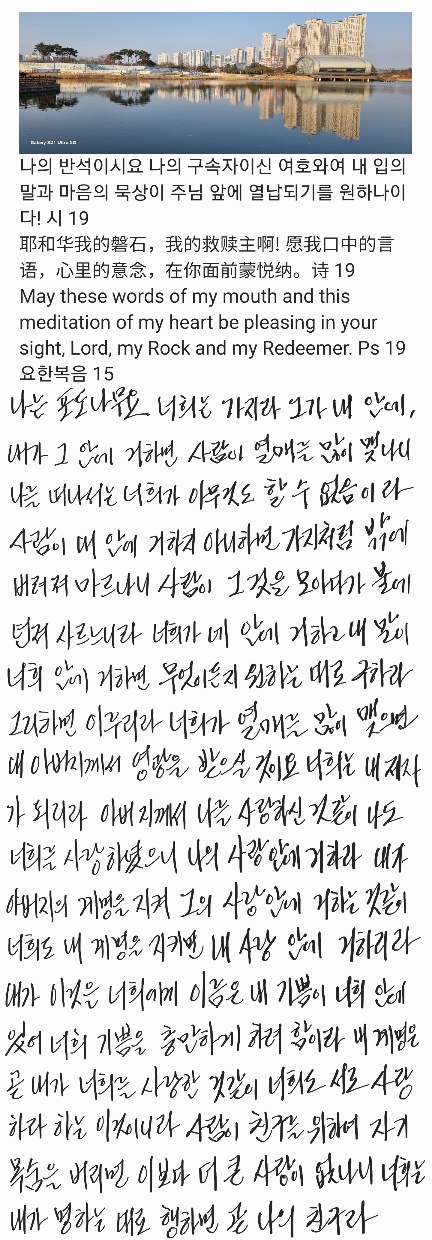 Galaxy S21 Ultra 5G
나의 반석이시요 나의 구속자이신 여호와여 내 입의
말과 마음의 묵상이 주님 앞에 열납되기를 원하나이
다! 시 19
耶和华我的磐石，我的救赎主啊! 愿我口中的言
语，心里的意念，在你面前蒙悦纳。诗 19
May these words of my mouth and this
meditation of my heart be pleasing in your
sight, Lord, my Rock and my Redeemer. Ps 19
요한복음 15
나는 포도나무요 너희는 가지라 그가 내 안에,
내가 그 안에 거하면 사람이 열매를 많이 맺나니
나를 떠나서는 너희가 아무것도 할 수 없음이라
사람이 내 안에 거하지 아니하면 가지처럼 밖에
버려져 마르나니 사람이 그것을 모아다가 불에
던져 사르느니라 너희가 내 안에 거하고 내 말이
너희 안에 거하면 무엇이든지 원하는 대로 구하라
그리하면 이루리라 너희가 열매를 많이 맺으면
내 아버지께서 영광을 받으실 것이요 너희는 내 제자
가 되리라 아버지께서 나를 사랑하신 것같이 나도
너희를 사랑하였으니 나의 사랑 안에 거하라 내가
아버지의 계명을 지켜 그의 사랑 안에 거하는 것같이
너희도 내 계명을 지키면 내 사랑 안에 거하리라
내가 이것을 너희에게 이름은 내 기쁨이 너희 안에
있어 너희 기쁨을 충만하게 하려 함이라 내 계명은
곧 내가 너희를 사랑한 것같이 너희도 서로 사랑
하라 하는 이것이니라 사람이 친구를 위하여 자기
목숨을 버리면 이보다 더 큰 사랑이 없나니 너희는
내가 명하는 대로 행하면 곧 나의 친구라